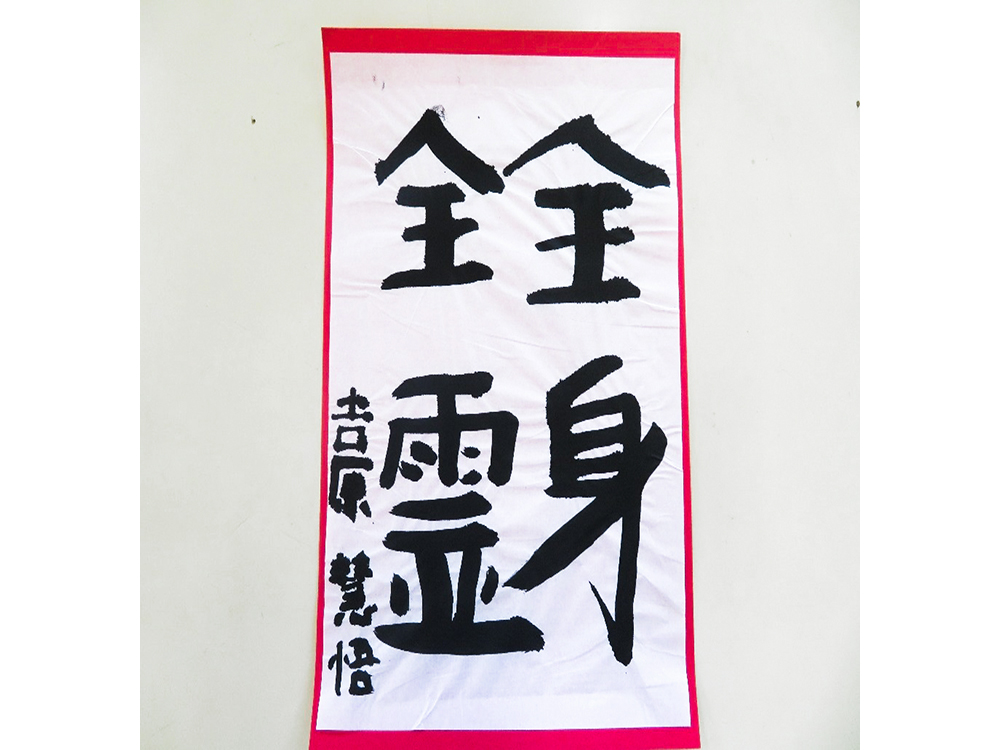 全身
全霊
吉原 慧悟